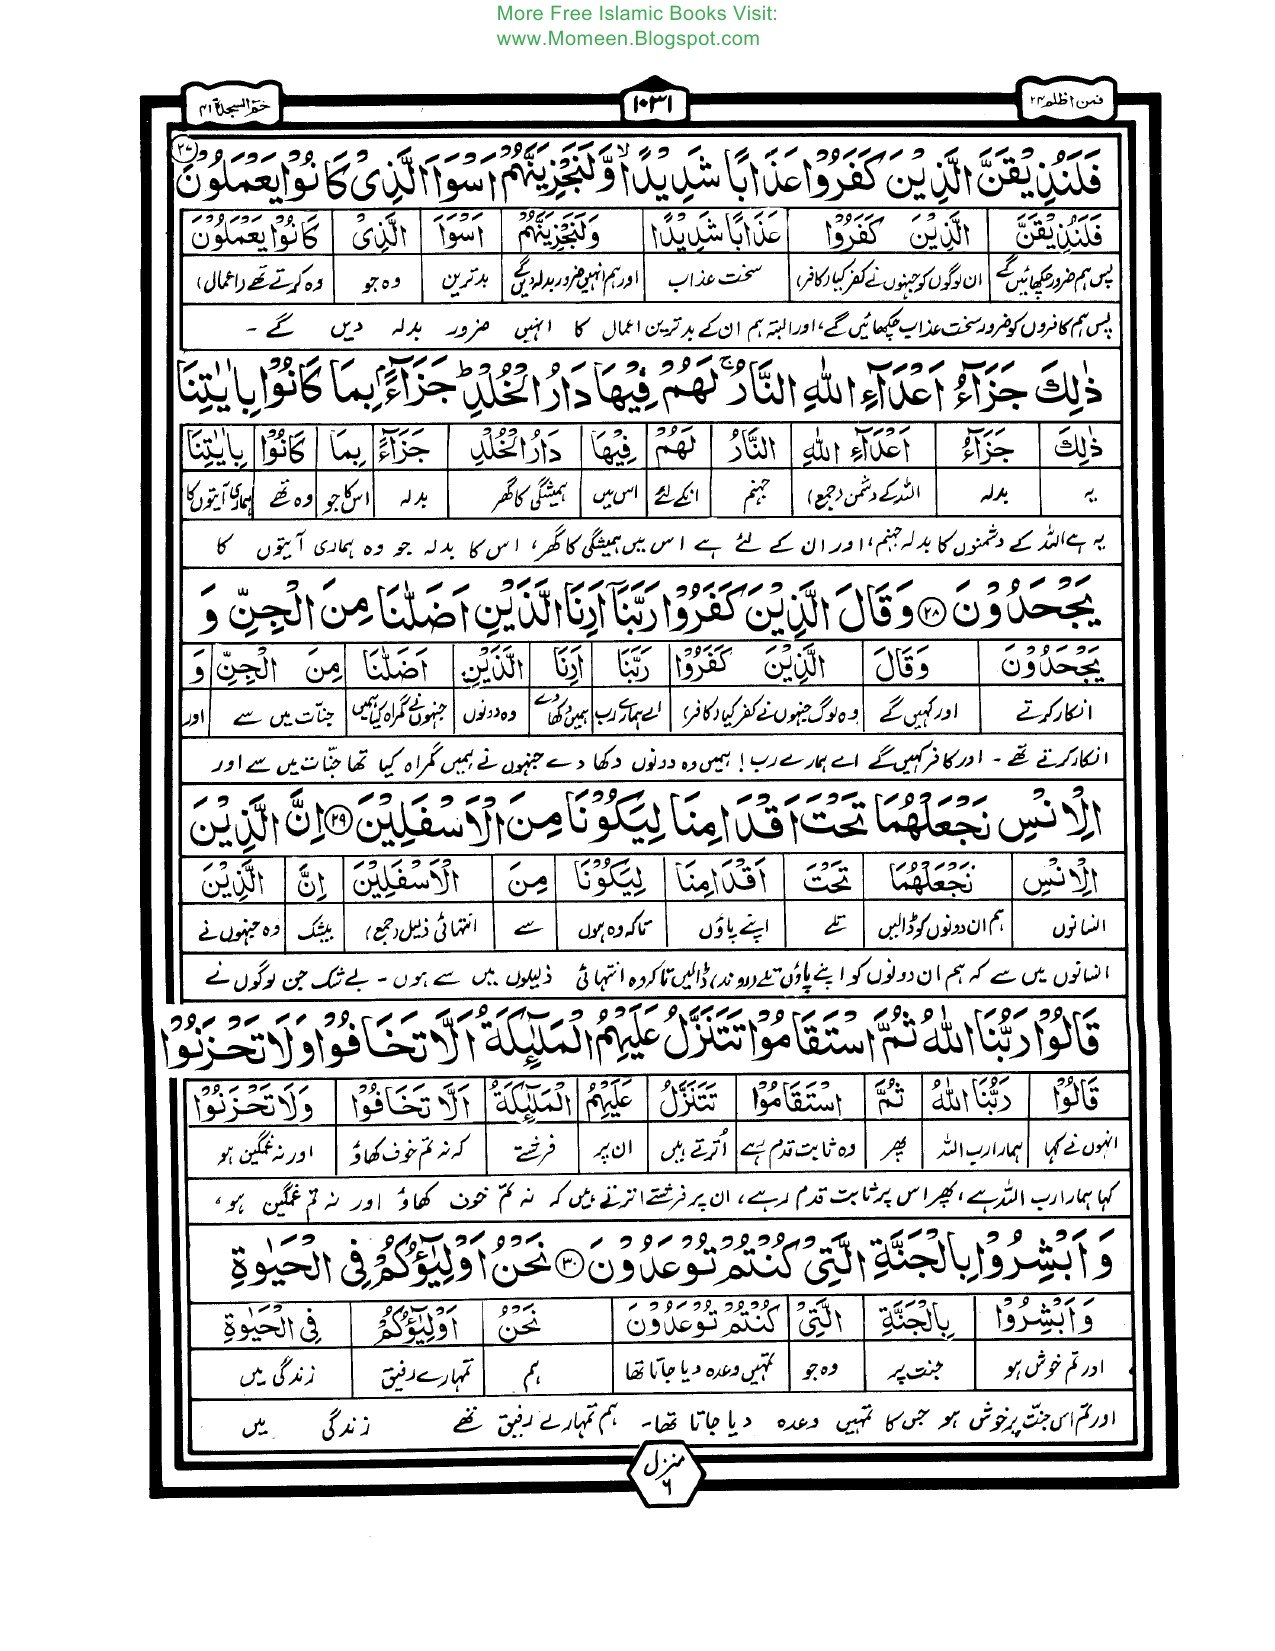 More Free Islamic Books Visit:
www.Momeen.Blogspot.com
فمن اظلم ۲۴ ۱۰۳۱ حٰمٓ السجدۃ ۴۱
فَلَنُذِيْقَنَّ الَّذِيْنَ كَفَرُوْا عَذَابًا شَدِيْدًا ۙ وَّلَنَجْزِيَنَّهُمْ اَسْوَاَ الَّذِيْ كَانُوْا يَعْمَلُوْنَ ۲۷
فَلَنُذِيْقَنَّ الَّذِيْنَ كَفَرُوْا عَذَابًا شَدِيْدًا وَلَنَجْزِيَنَّهُمْ اَسْوَاَ الَّذِيْ كَانُوْا يَعْمَلُوْنَ
پس ہم ضرور چکھائیں گے ان لوگوں کو جنہوں نے کفر کیا (کافر) سخت عذاب اور ہم انہیں ضرور بدلہ دیں گے بدترین وہ جو وہ کرتے تھے (اعمال)
پس ہم کافروں کو ضرور سخت عذاب چکھائیں گے، اور البتہ ہم ان کے بدترین اعمال کا انہیں ضرور بدلہ دیں گے ۔
ذٰلِكَ جَزَآءُ اَعْدَآءِ اللّٰهِ النَّارُ ۚ لَهُمْ فِيْهَا دَارُ الْخُلْدِ ؕ جَزَآءًۢ بِمَا كَانُوْا بِاٰيٰتِنَا
ذٰلِكَ جَزَآءُ اَعْدَآءِ اللّٰهِ النَّارُ لَهُمْ فِيْهَا دَارُ الْخُلْدِ جَزَآءً بِمَا كَانُوْا بِاٰيٰتِنَا
یہ بدلہ اللہ کے دشمن (جمع) جہنم انکے لئے اس میں ہمیشگی کا گھر بدلہ اس کا جو وہ تھے ہماری آیتوں کا
یہ ہے اللہ کے دشمنوں کا بدلہ جہنم، اور ان کے لئے ہے اس میں ہمیشگی کا گھر، اس کا بدلہ جو وہ ہماری آیتوں کا
يَجْحَدُوْنَ ۲۸ وَقَالَ الَّذِيْنَ كَفَرُوْا رَبَّنَآ اَرِنَا الَّذَيْنِ اَضَلّٰنَا مِنَ الْجِنِّ وَ
يَجْحَدُوْنَ وَقَالَ الَّذِيْنَ كَفَرُوْا رَبَّنَا اَرِنَا الَّذَيْنِ اَضَلّٰنَا مِنَ الْجِنِّ وَ
انکار کرتے اور کہیں گے وہ لوگ جنہوں نے کفر کیا (کافر) اے ہمارے رب ہمیں دکھا دے وہ دونوں جنہوں نے گمراہ کیا ہمیں جنّات میں سے اور
انکار کرتے تھے ۔ اور کافر کہیں گے اے ہمارے رب! ہمیں وہ دونوں دکھا دے جنہوں نے ہمیں گمراہ کیا تھا جنّات میں سے اور
الْاِنْسِ نَجْعَلْهُمَا تَحْتَ اَقْدَامِنَا لِيَكُوْنَا مِنَ الْاَسْفَلِيْنَ ۲۹ اِنَّ الَّذِيْنَ
الْاِنْسِ نَجْعَلْهُمَا تَحْتَ اَقْدَامِنَا لِيَكُوْنَا مِنَ الْاَسْفَلِيْنَ اِنَّ الَّذِيْنَ
انسانوں ہم ان دونوں کو ڈالیں تلے اپنے پاؤں تاکہ وہ ہوں سے انتہائی ذلیل (جمع) بیشک وہ جنہوں نے
انسانوں میں سے کہ ہم ان دونوں کو اپنے پاؤں تلے (روند) ڈالیں تاکہ وہ انتہائی ذلیلوں میں سے ہوں ۔ بے شک جن لوگوں نے
قَالُوْا رَبُّنَا اللّٰهُ ثُمَّ اسْتَقَامُوْا تَتَنَزَّلُ عَلَيْهِمُ الْمَلٰٓئِكَةُ اَلَّا تَخَافُوْا وَلَا تَحْزَنُوْا
قَالُوْا رَبُّنَا اللّٰهُ ثُمَّ اسْتَقَامُوْا تَتَنَزَّلُ عَلَيْهِمُ الْمَلٰٓئِكَةُ اَلَّا تَخَافُوْا وَلَا تَحْزَنُوْا
انہوں نے کہا ہمارا رب اللہ پھر وہ ثابت قدم رہے اُترتے ہیں ان پر فرشتے کہ نہ تم خوف کھاؤ اور نہ غمگین ہو
کہا ہمارا رب اللہ ہے، پھر اس پر ثابت قدم رہے، ان پر فرشتے اترتے ہیں کہ نہ تم خوف کھاؤ اور نہ تم غمگین ہو،
وَاَبْشِرُوْا بِالْجَنَّةِ الَّتِيْ كُنْتُمْ تُوْعَدُوْنَ ۳۰ نَحْنُ اَوْلِيٰٓؤُكُمْ فِي الْحَيٰوةِ
وَاَبْشِرُوْا بِالْجَنَّةِ الَّتِيْ كُنْتُمْ تُوْعَدُوْنَ نَحْنُ اَوْلِيٰٓؤُكُمْ فِي الْحَيٰوةِ
اور تم خوش ہو جنت پر وہ جو تمہیں وعدہ دیا جاتا تھا ہم تمہارے رفیق زندگی میں
اور تم اس جنت پر خوش ہو جس کا تمہیں وعدہ دیا جاتا تھا۔ ہم تمہارے رفیق تھے زندگی میں
منزل ۶